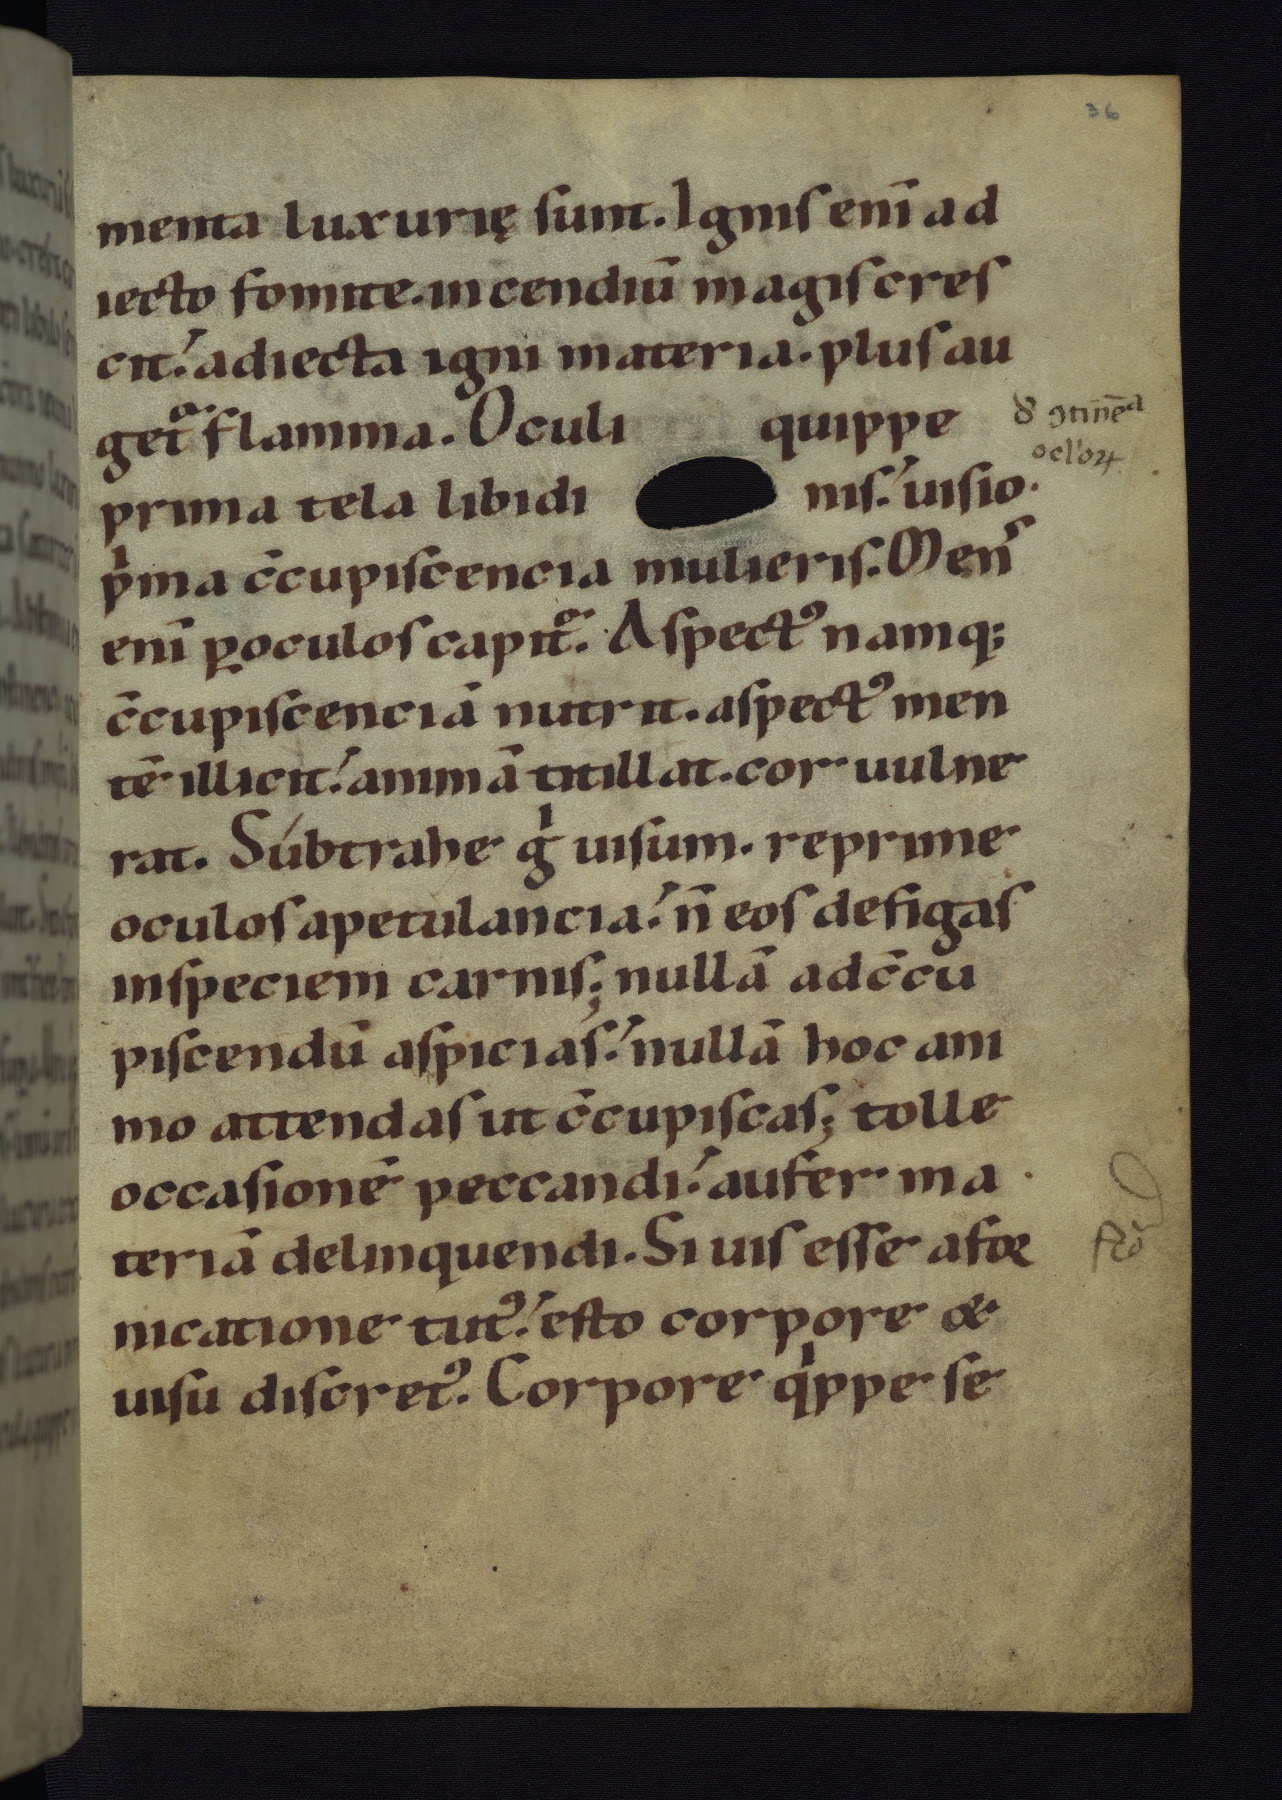 36
menta luxurię sunt. Ignis enī ad
iecto fomite. incendiū magis cres
cit. adiecta igni materia. plus au
get᷑ flamma. Oculi quippe
ꝯtinēᵃ
ocĺoꝝ
prima tela libidi nis. uisio.
pͥma c̄cupiscencia mulieris. Mens
enī ꝑ oculos capit᷑. Aspectꝰ namq;
c̄cupiscenciā nutrit. aspectꝰ men
tē illicit. animā titillat. cor uulne
rat. Súbtrahe gͥ uisum. reprime
oculos a petulancia. n̄ eos defigas
in speciem carnis; nullā ad c̄cu
piscendū aspicias. nullā hoc ani
mo attendas ut c̄cupiscas; tolle
occasionē peccandi. aufer ma
teriā delinquendi. Si uis esse a for
nicatione tutꝰ. esto corpore &
uisu discretꝰ. Corpore qͥppe se